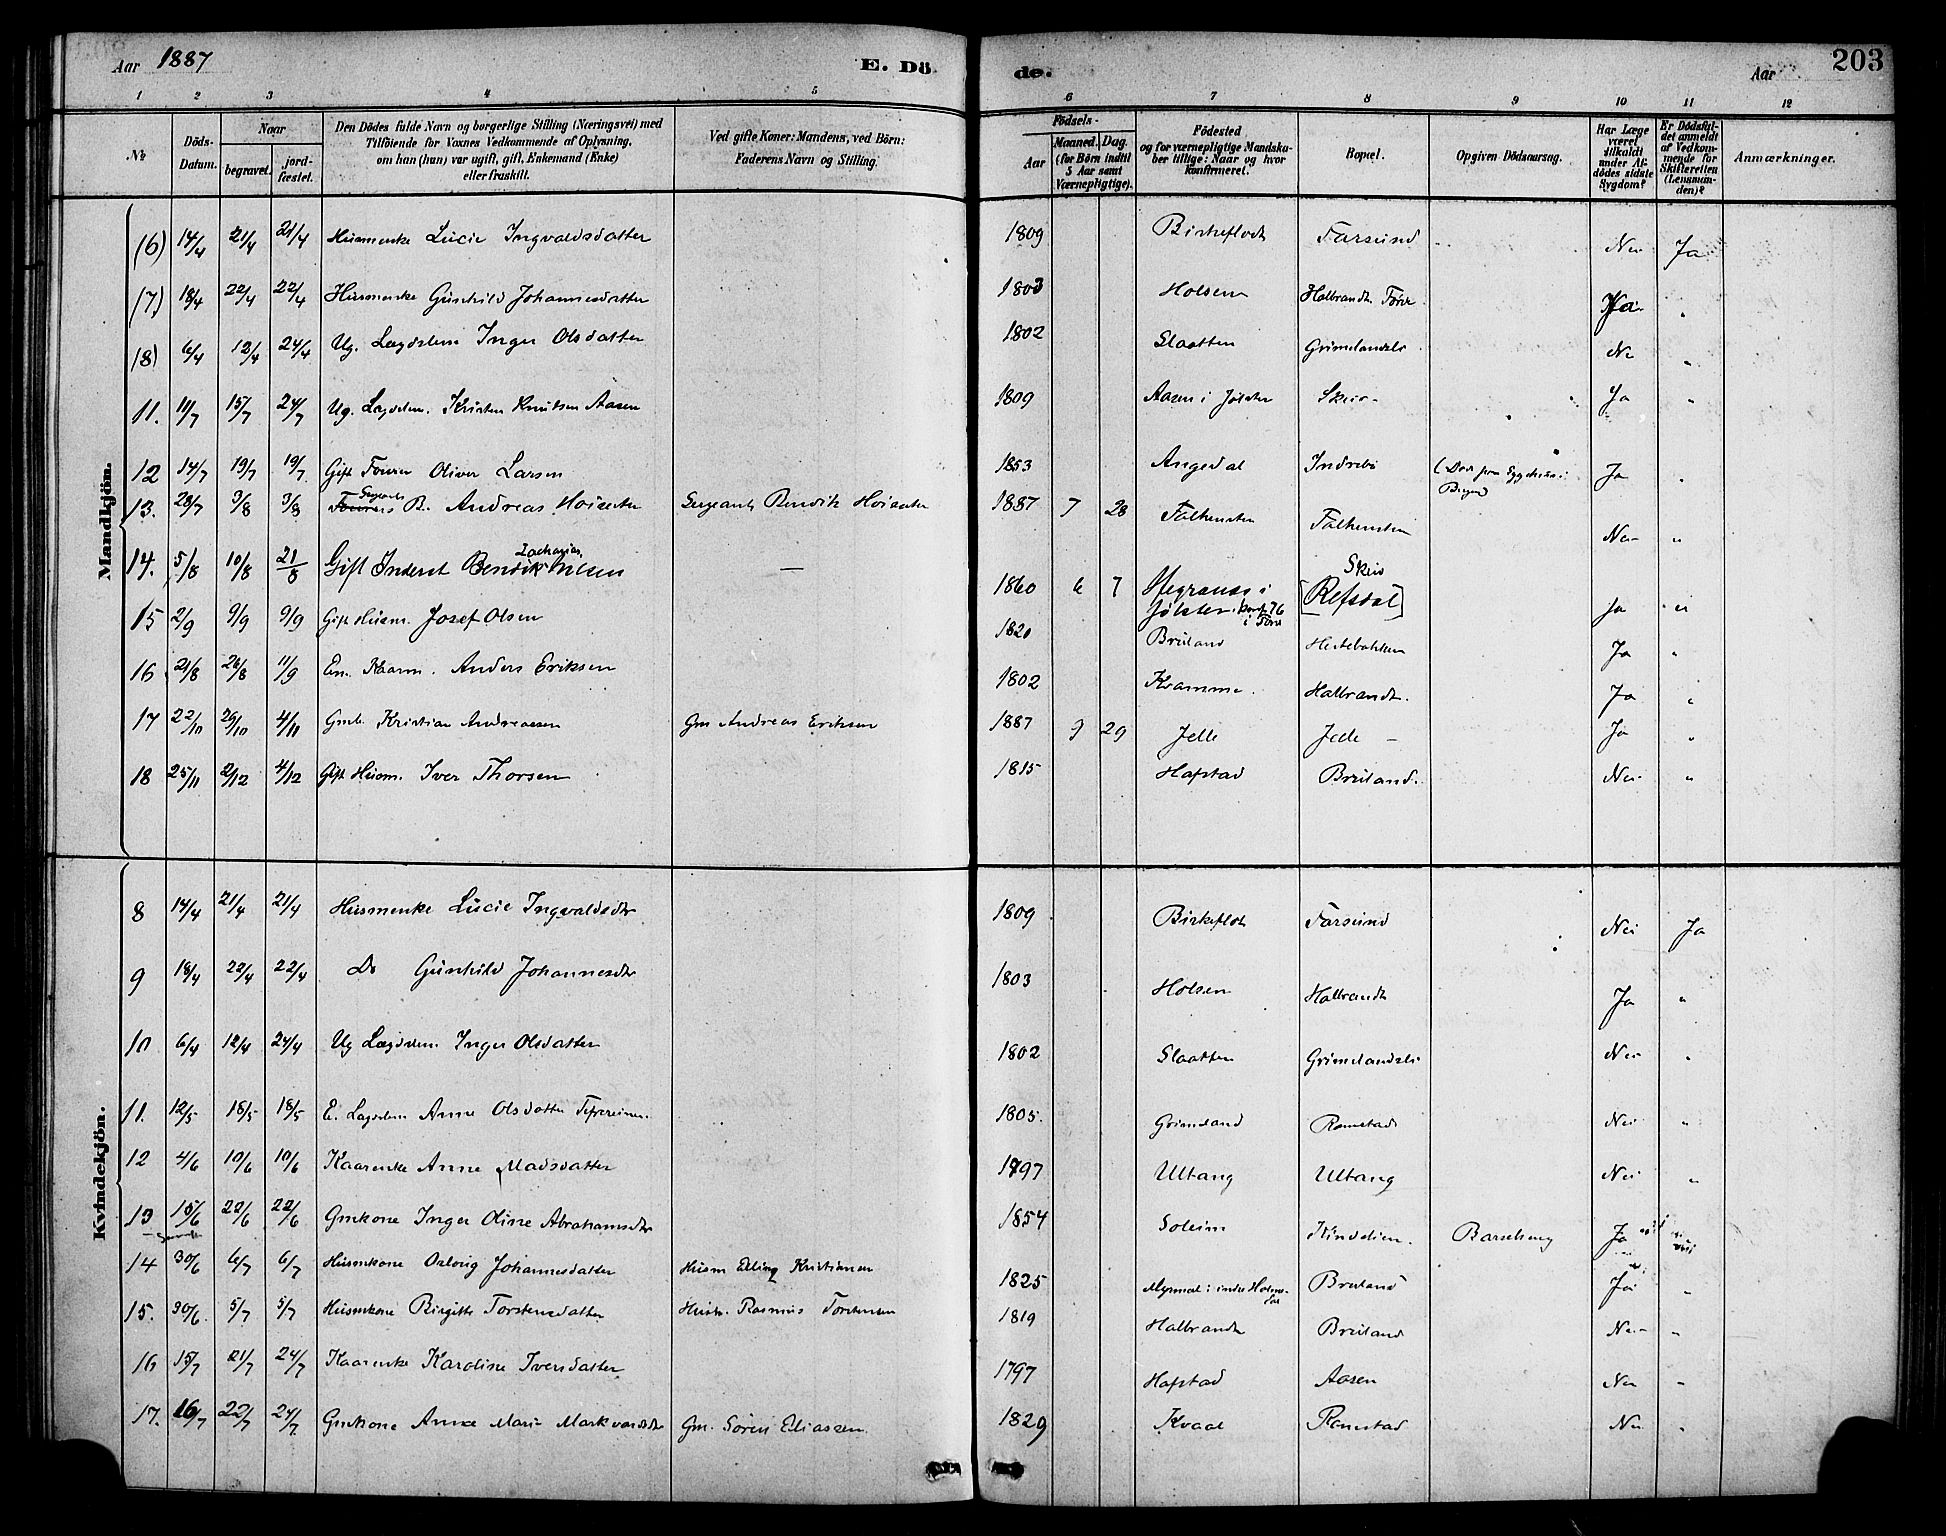 Aar 1887 E. Dö de. Aar 203
1 2 3 4 5 6 7 8 9 10 11 12
No Döds-Datum. Naar begravet. jord-fæstet. Den Dödes fulde Navn og borgerlige Stilling (Næringsvei) med Tilföiende for Voxnes Vedkommende af Oplysning, om han (hun) var ugift, gift, Enkemand (Enke) eller fraskilt. Ved gifte Koner: Mandens, ved Börn: Faderens Navn og Stilling. Födsels- Aar Maaned. Dag. (for Börn indtil 5 Aar samt Værnepligtige). Födested og for værnepligtige Mandskaber tillige: Naar og hvor konfirmeret. Bopæl. Opgiven Dödsaarsag. Har Læge været tilkaldt under Afdödes sidste Sygdom? Er Dödsfaldet anmeldt af Vedkommende for Skifteretten (Lensmanden)? Anmærkninger.
Mandkjön.
(6) 14/4 21/4 21/4 Husmenke Lucie Ingvaldsdatter 1809 Birkeflot Farsund Nei Ja
(7) 18/4 22/4 22/4 Husmenke Gunhild Johannesdatter 1803 Holsen Halbrandt Förde Ja "
(8) 6/4 12/4 24/4 Ug. Lægdslem Inger Olsdatter 1802 Slaatten Grimelandsli Ne "
11. 11/7 15/7 24/7 Ug. Lagdslem. Kristen Knutsen Aasen 1809 Aasen i Jölster Skei Ja "
12 14/7 19/7 19/7 Gift Fourer Oliver Larsen 1853 Angedal Indrebö Ja "
13. 28/7 3/8 3/8 Sergeants B. Andreas Höisæter Sergeant Bendik Höisæter 1887 7 28 Falkensten Falkensten Nei "
14. 5/8 10/8 21/8 Gift Inderst Bendik Zacharias Nilsen — 1860 6 7 i Jölster. konf. 76 i Förde Skei [Refsdal] Ja "
15 2/9 9/9 9/9 Gift Husm. Josef Olsen 1820 Bruland Hestebakken Ja "
16 21/8 26/8 11/9 Em. Kaarm. Anders Eriksen 1802 Kramme. Halbrandt. Ja "
17 22/10 26/10 4/11 Gmb. Kristian Andreassen Gm Andreas Eriksen 1887 9 29 Jelle Jelle — Ja "
18 25/11 2/12 4/12 Gift Husm. Iver Thorsen 1815 Hafstad Bruland. Nei "
Kvindekjön.
8 14/4 21/4 21/4 Husmenke Lucie Ingvaldsdtr 1809 Birkeflot Farsund Nei Ja
9 18/4 22/4 22/4 Do Gunhild Johannesdtr 1803 Holsen Halbrandt Ja "
10 6/4 12/4 24/4 Ug Lægdslem Inger Olsdatter 1802 Slaatten Grimelandsli Nei "
11. 12/5 18/5 18/5 E. Lagdslem Anne Olsdatter 1805. Grimeland Ramstad Nei "
12 4/6 10/6 10/6 Kaarenke Anne Madsdatter 1797 Ultang Ultang Nei "
13 15/6 22/6 22/6 Gmkone Inger Oline Abrahamsdtr 1854 Soleim Barselseng Ja
14 30/6 6/7 6/7 Husmkone Oslaug Johannesdatter Husm Elling Kristiansen 1825 i indre Holmedal Bruland Ja "
15. 30/6. 5/7 5/7 Husmkone Birgitte Torstensdatter Husm. Rasmus Torstensen 1819 Halbrandt Bruland Nei "
16 15/7 21/7 24/7 Kaarenke Karoline Iversdatter 1797 Hafstad Aasen Nei "
17. 16/7 22/7 24/7. Gmkone Anna Marie Markvardsdtr Gm. Sören Eliassen. 1829 Kvaal Ramstad Nei "